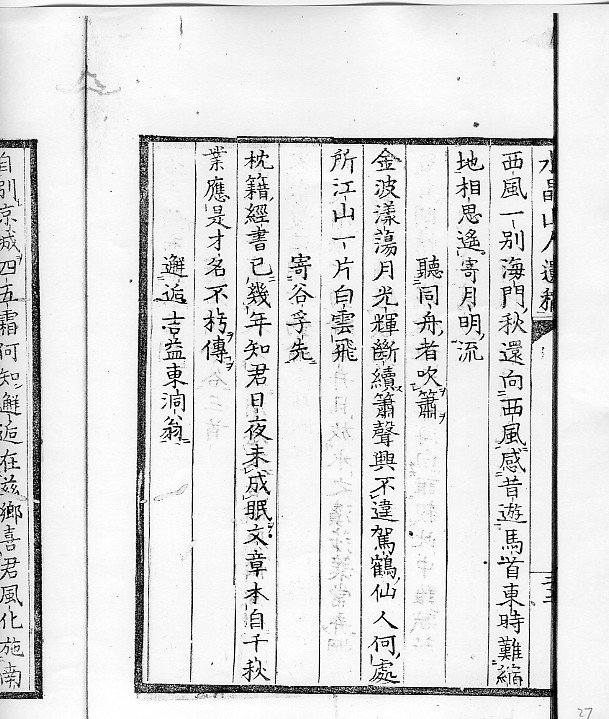 水晶山人遺稿
西風一別海門秋還向西風感昔遊馬首東時難縮
地相思遙寄月明流
聽同舟者吹簫
金波漾蕩月光輝斷續簫聲興不違駕鶴仙人何處
所江山一片白雲飛
寄谷孚先
枕籍經書已幾年知君日夜未成眠文章本自千秋
業應是才名不朽傳
邂逅吉益東洞翁
自別京城四五霜何知邂逅在茲鄉喜君風化施南
27